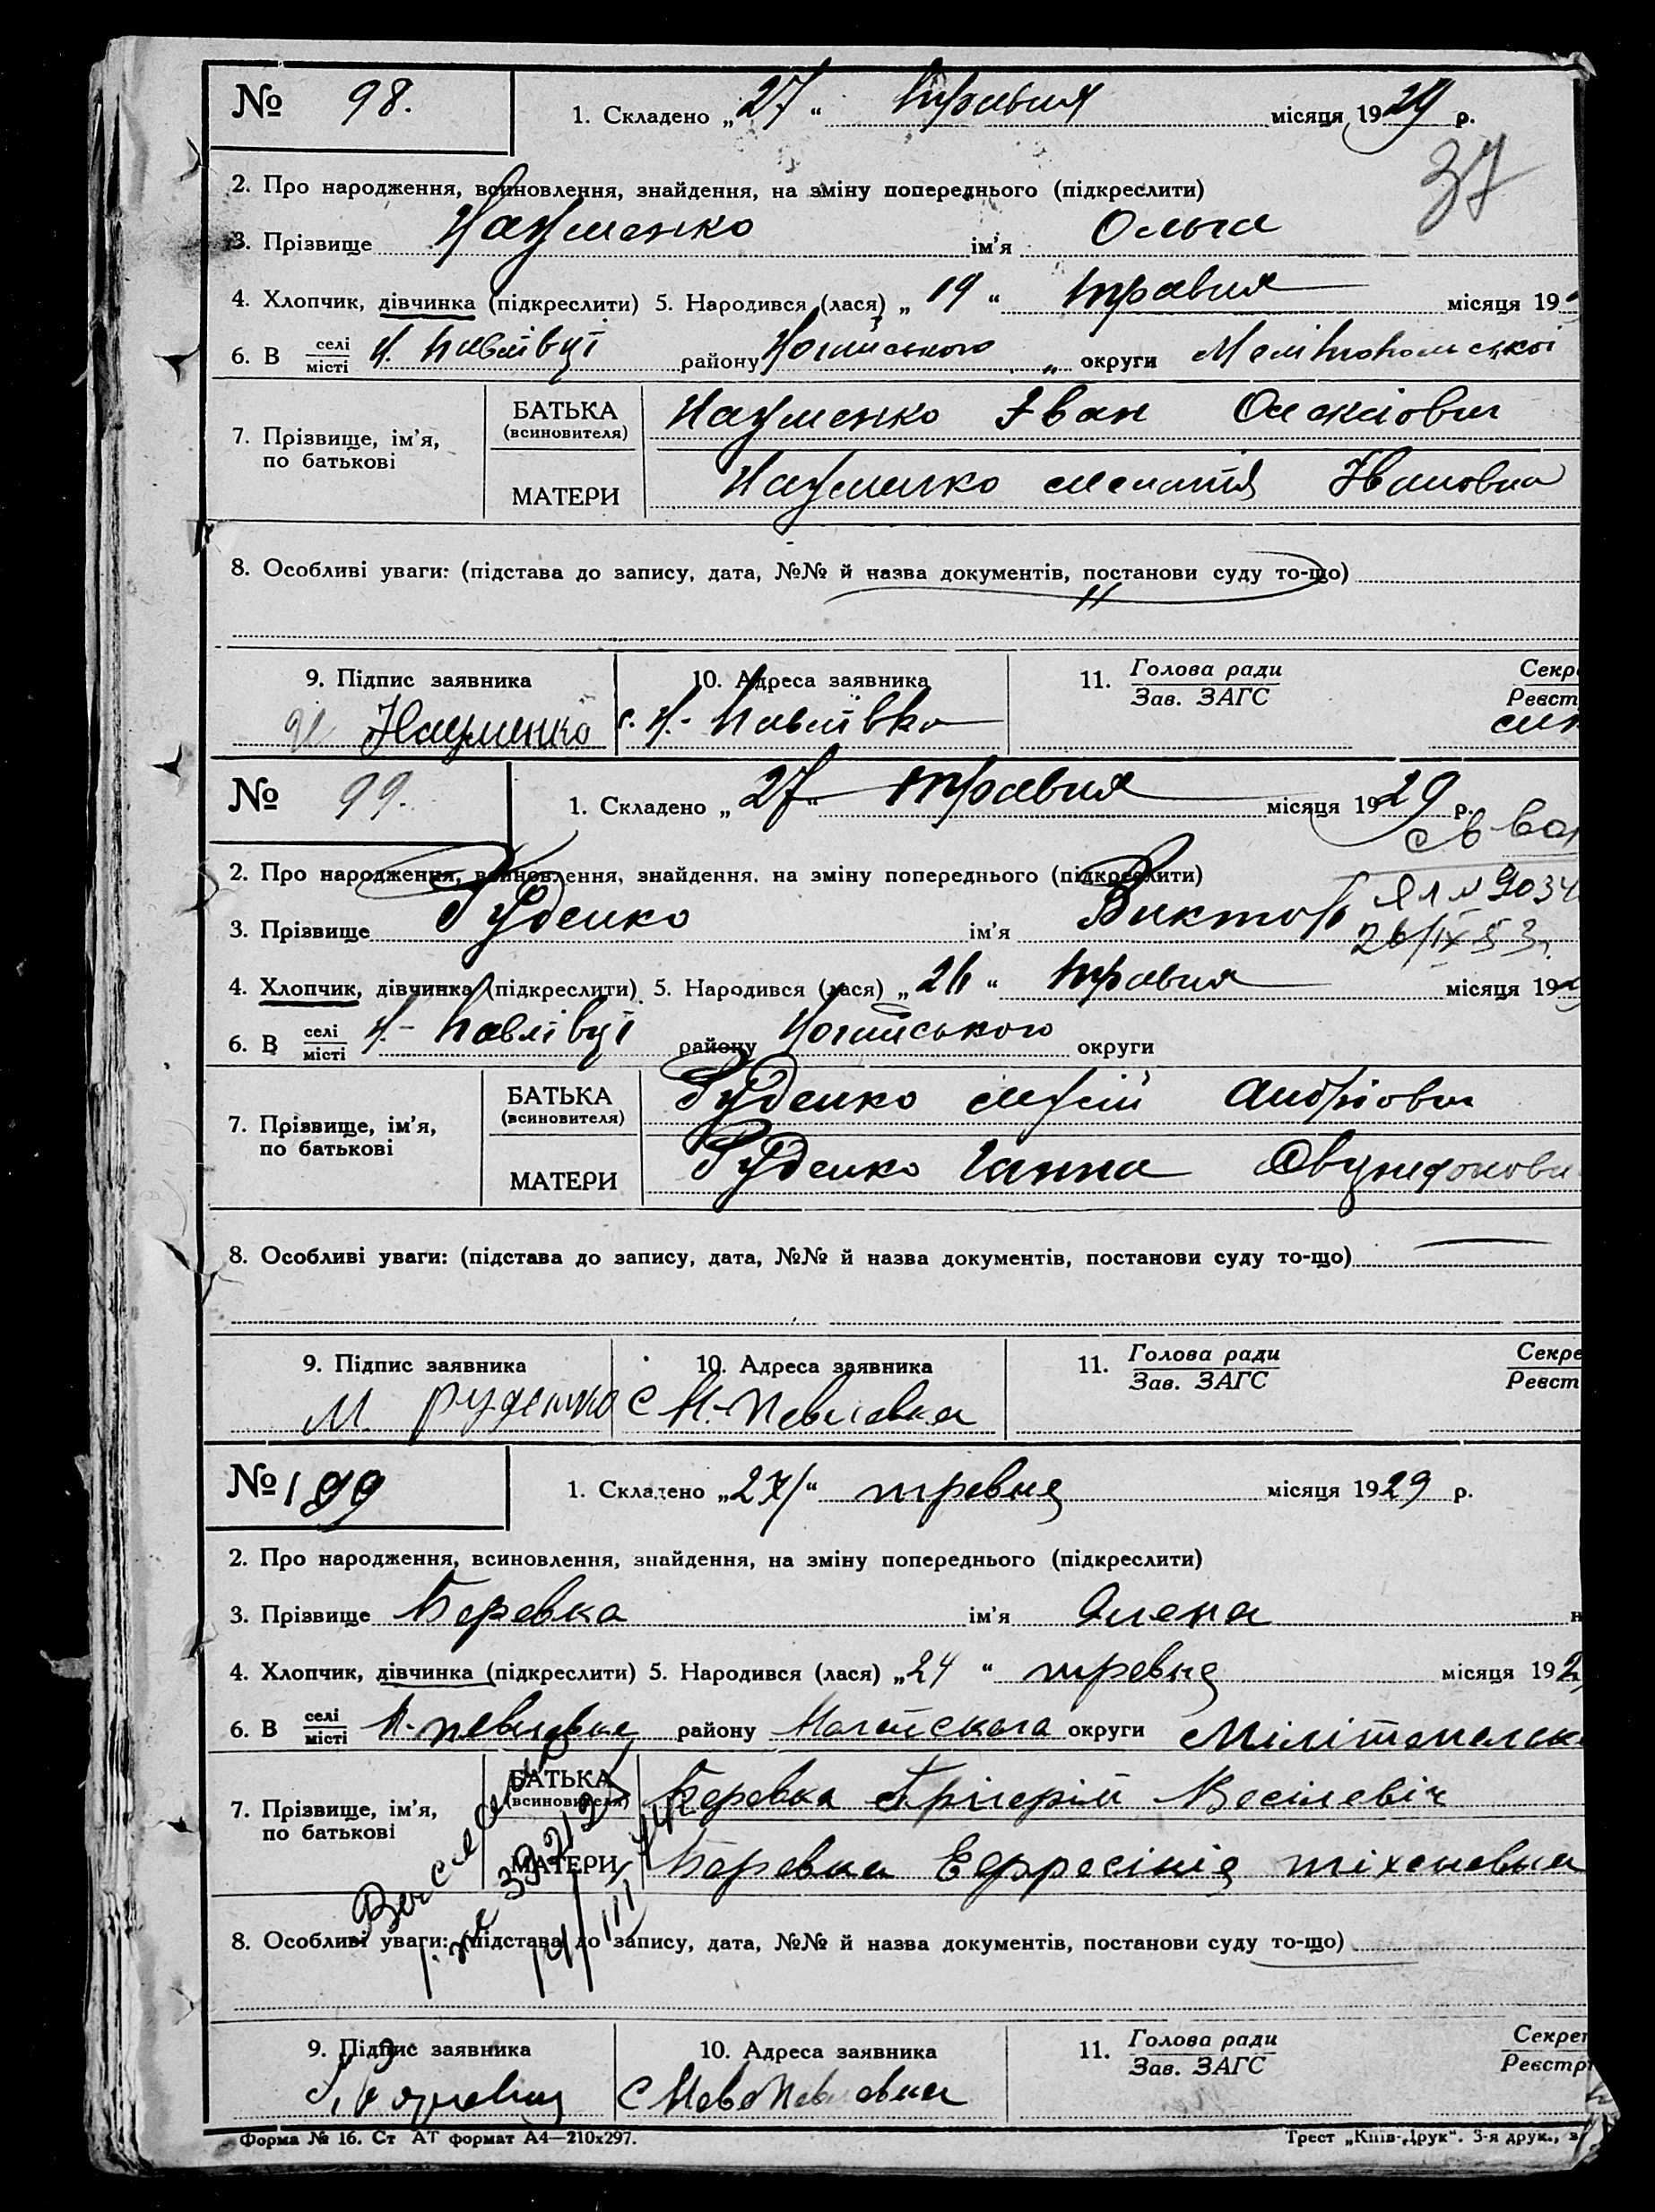 № 98. 1. Складено „27“ травня місяця 1929 р.
37
2. Про народження, всиновлення, знайдення, на зміну попереднього (підкреслити)
3. Прізвище Науменко ім'я Ольга
4. Хлопчик, дівчинка (підкреслити) 5. Народився (лася) „19“ травня місяця 19
6. В селі/місті Н. Павлівці району Ногайського округи Мелітопольської
7. Прізвище, ім'я, по батькові
БАТЬКА (всиновителя) Науменко Іван Олексіович
МАТЕРИ Науменко Івановна
8. Особливі уваги: (підстава до запису, дата, №№ й назва документів, постанови суду то-що)
9. Підпис заявника 10. Адреса заявника 11. Голова ради Секре
Зав. ЗАГС Реєст
Науменко с. Н-Павлівка
№ 99. 1. Складено „27“ травня місяця 1929 р.
2. Про народження, всиновлення, знайдення, на зміну попереднього (підкреслити)
3. Прізвище Руденко ім'я Виктор
26/IX 53г.
4. Хлопчик, дівчинка (підкреслити) 5. Народився (лася) „26“ травня місяця 192
6. В селі/місті Н-Павлівці району Ногайського округи
7. Прізвище, ім'я, по батькові
БАТЬКА (всиновителя) Руденко Андріович
МАТЕРИ Руденко Ганна
8. Особливі уваги: (підстава до запису, дата, №№ й назва документів, постанови суду то-що)
9. Підпис заявника 10. Адреса заявника 11. Голова ради Секре
Зав. ЗАГС Реєст
М Руденко с Н-Павлавка
№ 1. Складено „27“ травня місяця 1929 р.
2. Про народження, всиновлення, знайдення, на зміну попереднього (підкреслити)
3. Прізвище Боровка ім'я Олена
4. Хлопчик, дівчинка (підкреслити) 5. Народився (лася) „24“ травня місяця 192
6. В селі/місті району Ногайского округи
7. Прізвище, ім'я, по батькові
БАТЬКА (всиновителя) Боровка Грігорій Васілевіч
МАТЕРИ Боровка Ефросінія тіхоновна
8. Особливі уваги: (підстава до запису, дата, №№ й назва документів, постанови суду то-що)
9. Підпис заявника 10. Адреса заявника 11. Голова ради Секрет
Зав. ЗАГС Реєстр
с НовоПавловка
Форма № 16. Ст АТ формат А4—210х297. Трест „Київ-Друк“. 3-я друк.,